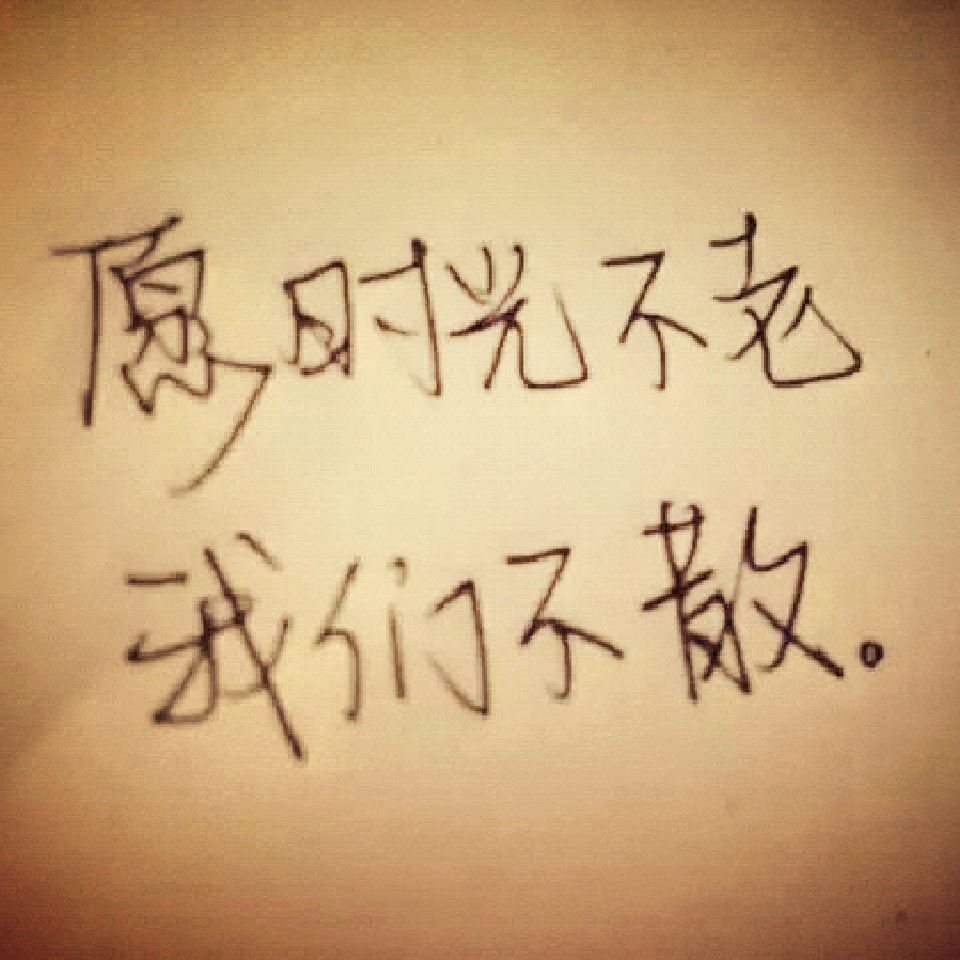 愿时光不老
我们不散。